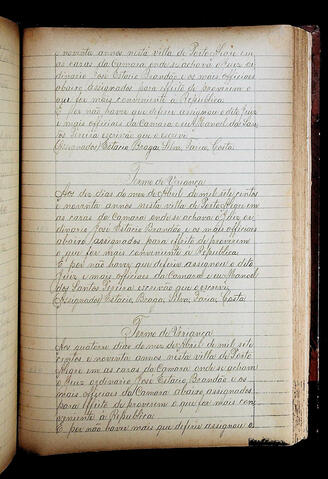 e noventa annos nesta villa de Porto Alegre em
as casas da Camara onde se achava o Juiz or
dinario Jose Estacio Brandão e os mais officiaes
abaixo assignados para effeito de proverem o
que for mais conveniente a Republica.
E por não haver que deferir assignou o dito Juiz
e mais officiaes da Camara e eu Manoel dos San
tos Pereira escrivão que o escrevi.
(Assignados) Estacio, Braga, Silva, Faria, Costa.
Termo de Veriança
Aos dez dias do mez de Abril de mil sete centos
e noventa annos nesta villa de Porto Alegre em
as casas da Camara onde se achava o Juiz or
dinario Jose Estacio Brandão e os mais officiaes
abaixo assignados para effeito de proverem
o que for mais conveniente a Republica.
E por não haver que deferir assignou o dito
Juiz e mais officiaes da Camara e eu Manoel
dos Santos Pereira escrivão que o escrevi.
(Assignados) Estacio, Braga, Silva, Faria, Costa
Termo de Veriança
Aos quatorze dias do mez de Abril de mil sete
centos e noventa annos nesta villa de Porto
Alegre em as casas da Camara onde se achava
o Juiz ordinario Jose Estacio Brandão e os
mais officiaes da Camara abaixo assignados
para effeito de proverem o que for mais con
veniente à Republica.
E por não haver mais que deferir assignou o